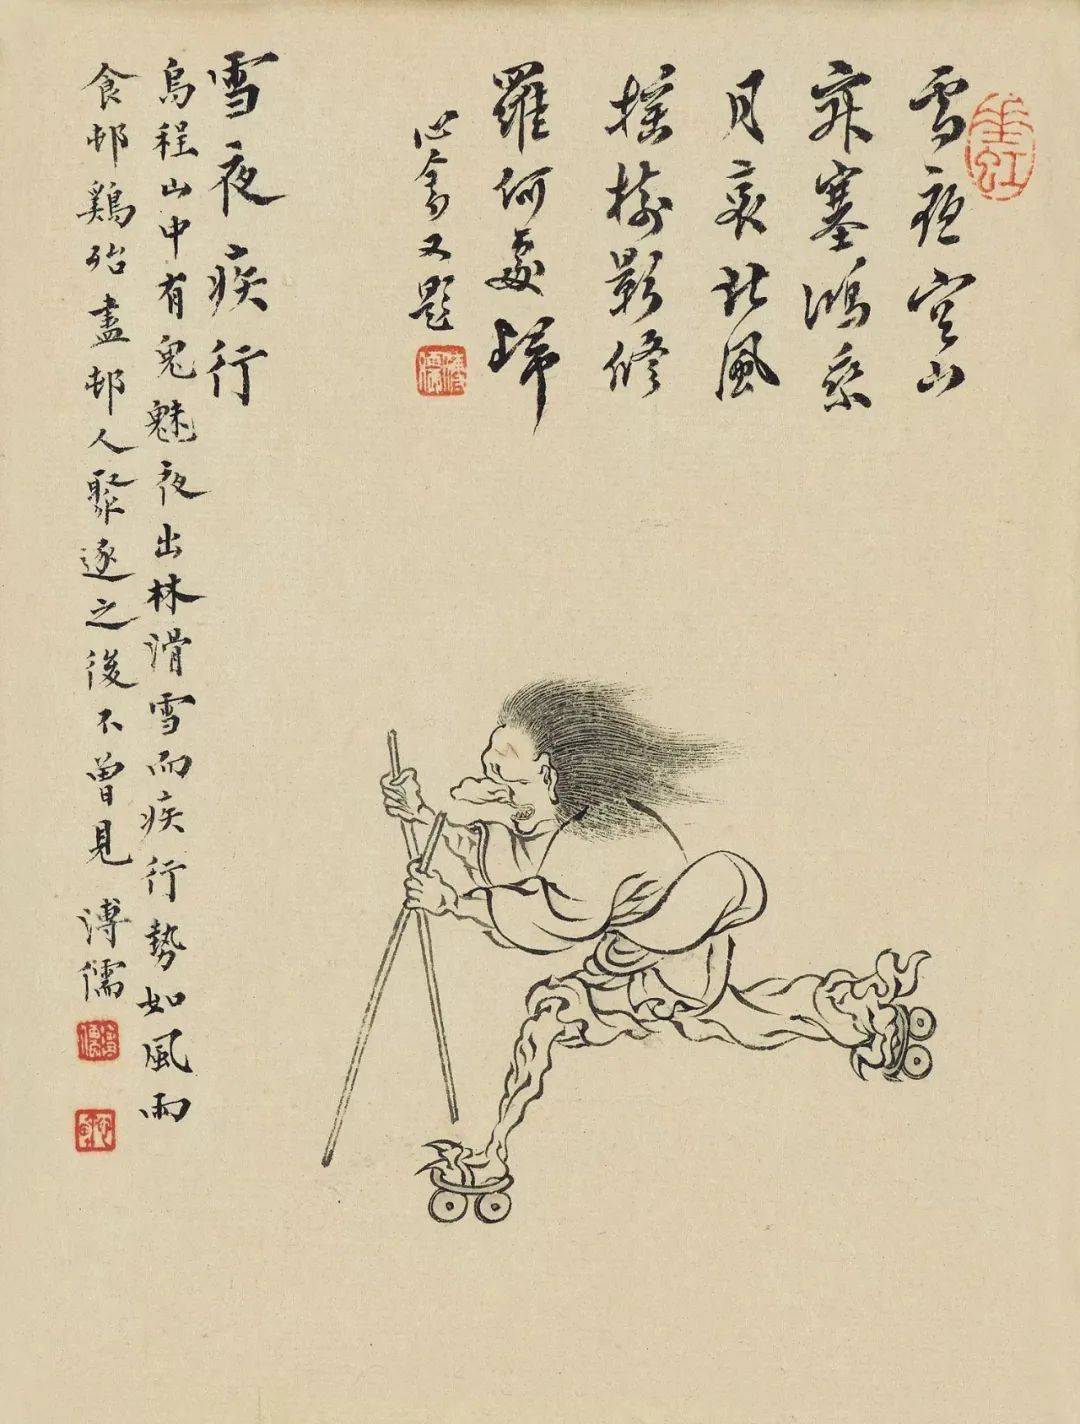 雪夜空山
寂塞鴻乘
月哀北風
搖樹影修
羅何處歸
心畬又題
溥儒
雪夜疾行
烏程山中有鬼魅夜出林滑雪而疾行勢如風雨
食邨鷄殆盡邨人聚逐之後不曾見 溥儒
溥儒